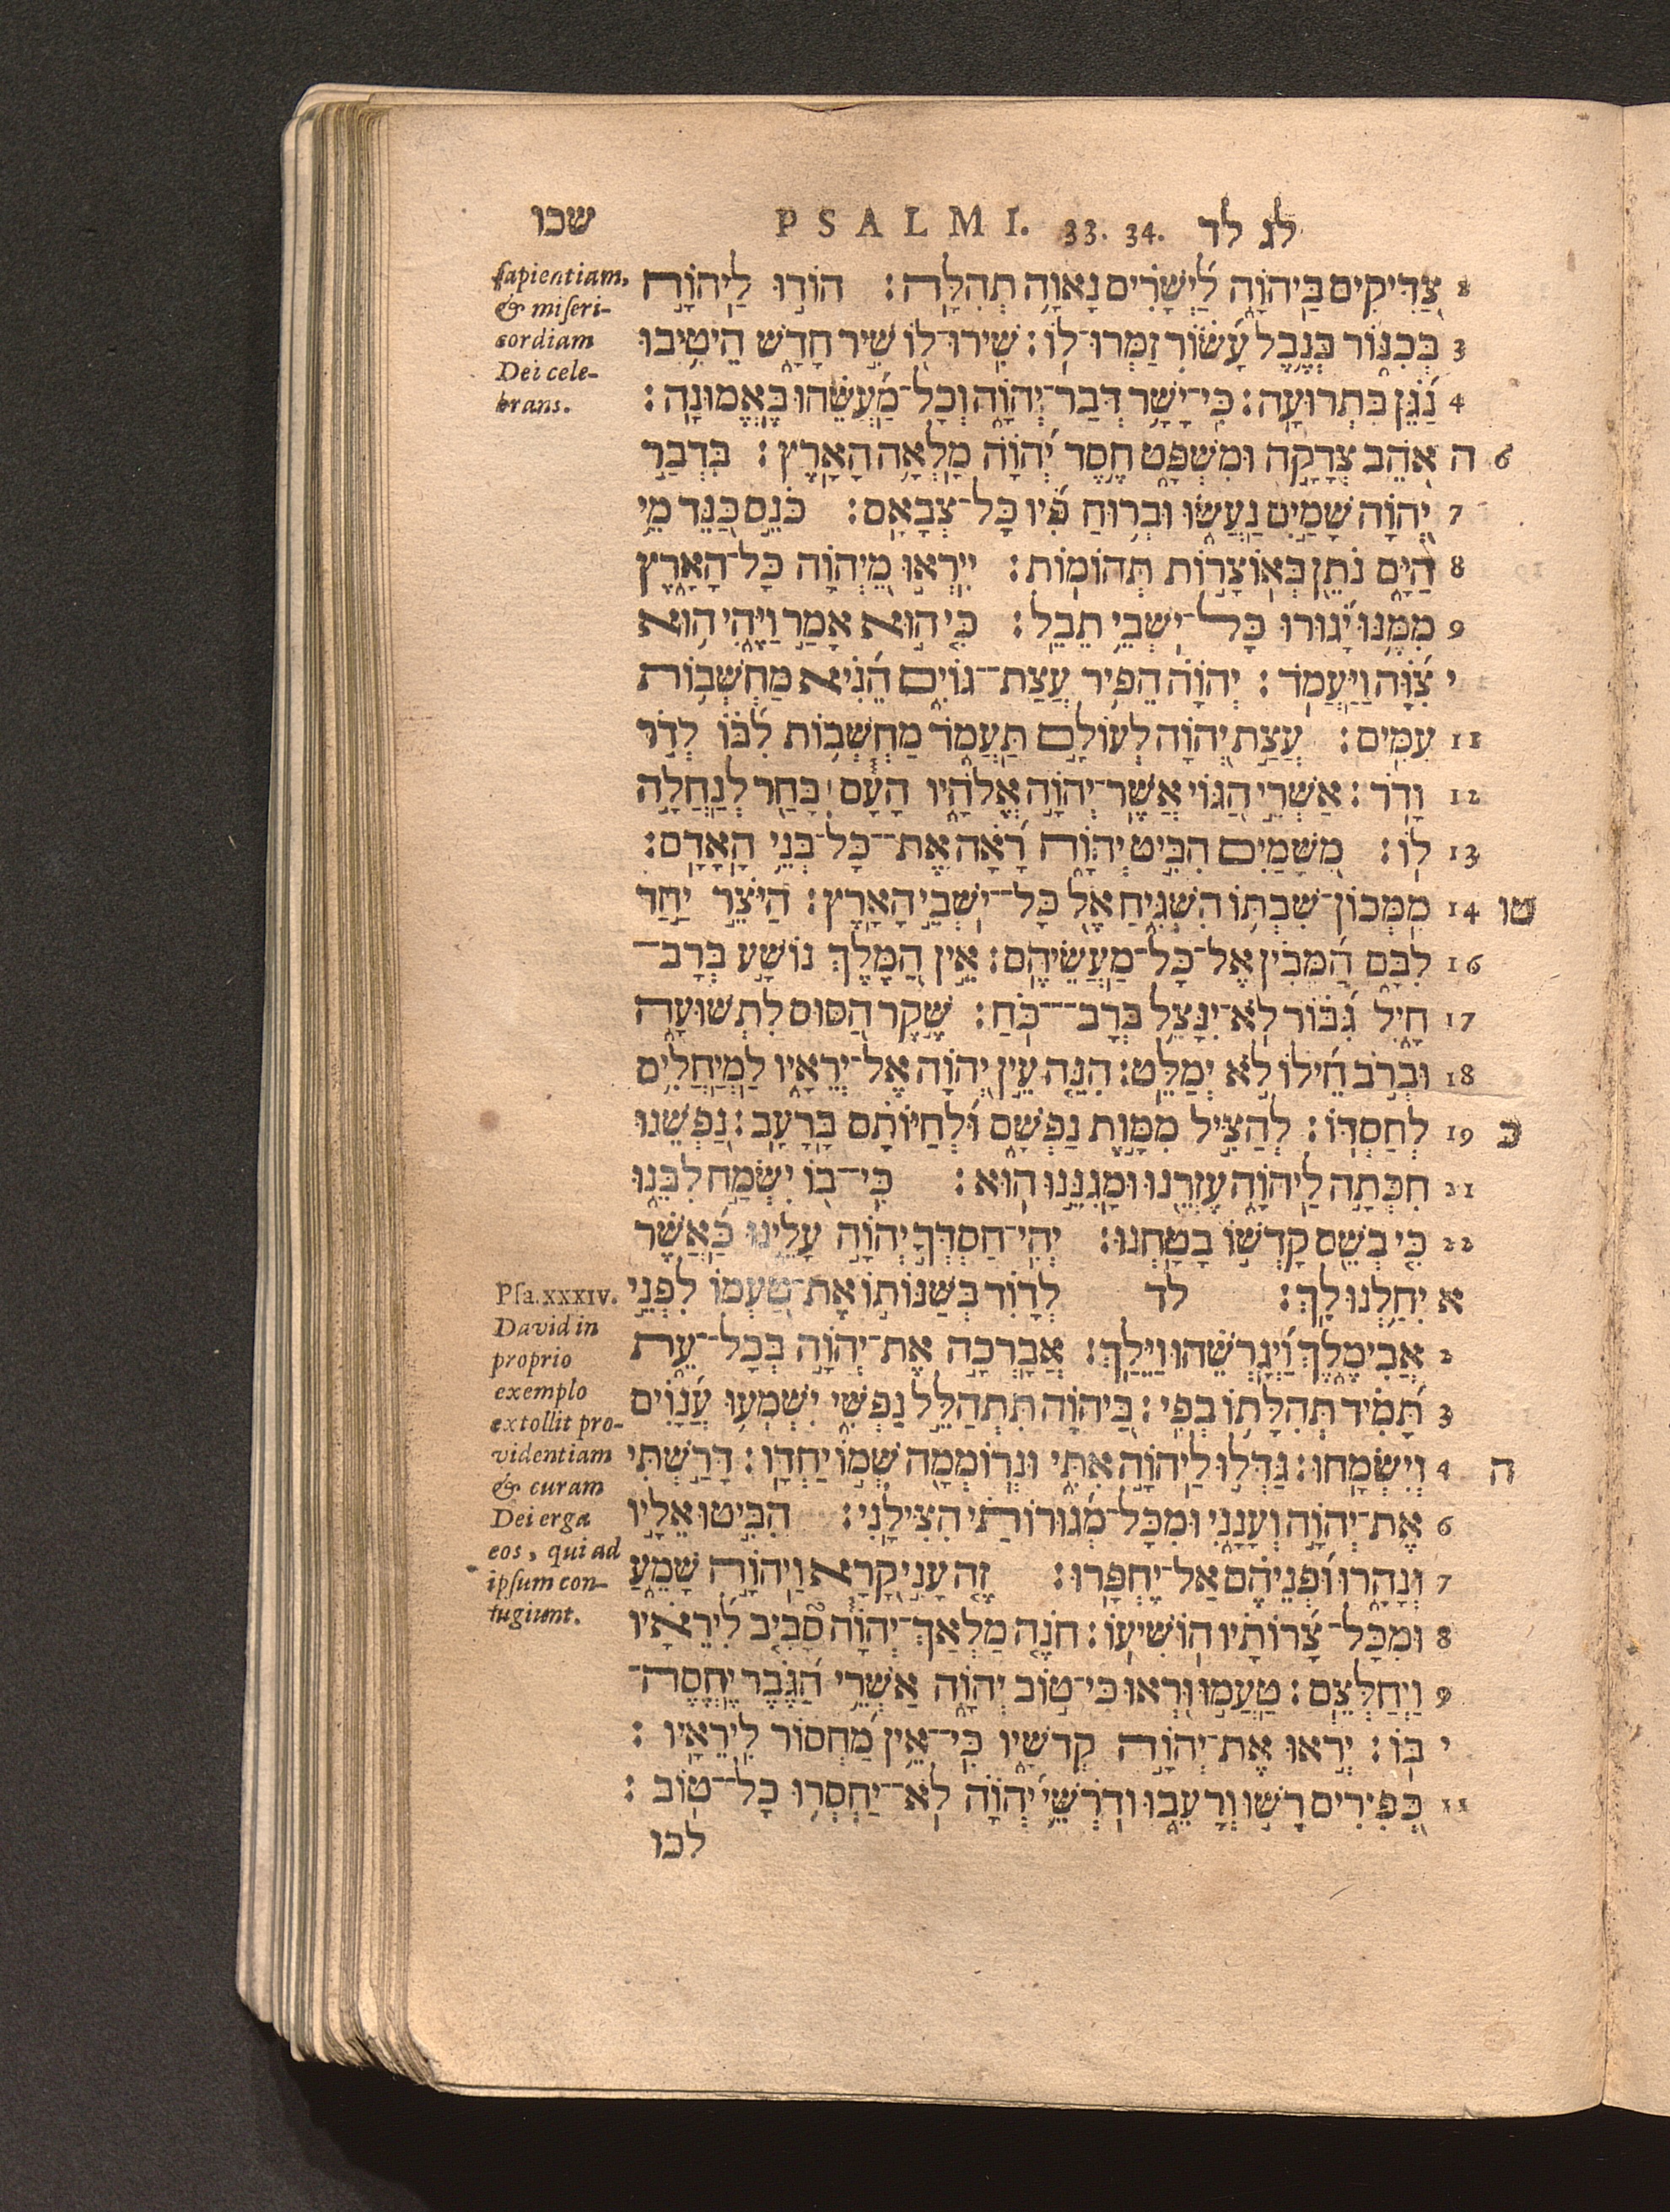 שכו PSALMI. 33. 34. לג לד
2 צַדִּיקִים בַּיהוָה לַיְשָׁרִים נָאוָה תְהִלָּה׃ הוֹדוּ לַיהוָה
3 בְּכִנּוֹר בְּנֵבֶל עָשׂוֹר זַמְּרוּ־לוֹ׃ שִׁירוּ־לוֹ שִׁיר חָדָשׁ הֵיטִיבוּ
4 נַגֵּן בִּתְרוּעָה׃ כִּי־יָשָׁר דְּבַר־יְהוָה וְכָל־מַעֲשֵׂהוּ בֶּאֱמוּנָה׃
6 ה אֹהֵב צְדָקָה וּמִשְׁפָּט חֶסֶד יְהוָה מָלְאָה הָאָרֶץ׃ בִּדְבַר
7 יְהוָה שָׁמַיִם נַעֲשׂוּ וּבְרוּחַ פִּיו כָּל־צְבָאָם׃ כֹּנֵס כַּנֵּד מֵי
8 הַיָּם נֹתֵן בְּאוֹצָרוֹת תְּהוֹמוֹת׃ יִירְאוּ מֵיְהוָה כָּל־הָאָרֶץ
9 מִמֶּנּוּ יָגוּרוּ כָּל־יֹשְׁבֵי תֵבֵל׃ כִּי הוּא אָמַר וַיֶּהִי הוּא
י צִוָּה וַיַּעֲמֹד׃ יְהוָה הֵפִיר עֲצַת־גּוֹיִם הֵנִיא מַחְשְׁבוֹת
11 עַמִּים׃ עֲצַת יְהוָה לְעוֹלָם תַּעֲמֹד מַחְשְׁבוֹת לִבּוֹ לְדֹר
12 וָדֹר׃ אַשְׁרֵי הַגּוֹי אֲשֶׁר־יְהוָה אֱלֹהָיו הָעָם ׀ בָּחַר לְנַחֲלָה
13 לוֹ׃ מִשָּׁמַיִם הִבִּיט יְהוָה רָאָה אֶת־כָּל־בְּנֵי הָאָדָם׃
טו 14 מִמְּכוֹן־שִׁבְתּוֹ הִשְׁגִּיחַ אֶל כָּל־יֹשְׁבֵי הָאָרֶץ׃ הַיֹּצֵר יַחַד
16 לִבָּם הַמֵּבִין אֶל־כָּל־מַעֲשֵׂיהֶם׃ אֵין הַמֶּלֶךְ נוֹשָׁע בְּרָב־
17 חָיִל גִּבּוֹר לֹא־יִנָּצֵל בְּרָב־כֹּחַ׃ שֶׁקֶר הַסּוּס לִתְשׁוּעָה
18 וּבְרֹב חֵילוֹ לֹא יְמַלֵּט׃ הִנֵּה עֵין יְהוָה אֶל־יְרֵאָיו לַמְיַחֲלִים
כ 19 לְחַסְדּוֹ׃ לְהַצִּיל מִמָּוֶת נַפְשָׁם וּלְחַיּוֹתָם בָּרָעָב׃ נַפְשֵׁנוּ
21 חִכְּתָה לַיהוָה עֶזְרֵנוּ וּמָגִנֵּנוּ הוּא׃ כִּי־בוֹ יִשְׂמַח לִבֵּנוּ
22 כִּי בְשֵׁם קָדְשׁוֹ בָטָחְנוּ׃ יְהִי־חַסְדְּךָ יְהוָה עָלֵינוּ כַּאֲשֶׁר
א יִחַלְנוּ לָךְ׃ לד לְדָוִד בְּשַׁנּוֹתוֹ אֶת־טַעְמוֹ לִפְנֵי
2 אֲבִימֶלֶךְ וַיְגָרְשֵׁהוּ וַיֵּלַךְ׃ אֲבָרְכָה אֶת־יְהוָה בְּכָל־עֵת
3 תָּמִיד תְּהִלָּתוֹ בְּפִי׃ בַּיהוָה תִּתְהַלֵּל נַפְשִׁי יִשְׁמְעוּ עֲנָוִים
ה 4 וְיִשְׂמָחוּ׃ גַּדְּלוּ לַיהוָה אִתִּי וּנְרוֹמְמָה שְׁמוֹ יַחְדָּו׃ דָּרַשְׁתִּי
6 אֶת־יְהוָה וְעָנָנִי וּמִכָּל־מְגוּרוֹתַי הִצִּילָנִי׃ הִבִּיטוּ אֵלָיו
7 וְנָהָרוּ וּפְנֵיהֶם אַל־יֶחְפָּרוּ׃ זֶה עָנִי קָרָא וַיהוָה שָׁמֵעַ
8 וּמִכָּל־צָרוֹתָיו הוֹשִׁיעוֹ׃ חֹנֶה מַלְאַךְ־יְהוָה סָבִיב לִירֵאָיו
9 וַיְחַלְּצֵם׃ טַעֲמוּ וּרְאוּ כִּי־טוֹב יְהוָה אַשְׁרֵי הַגֶּבֶר יֶחֱסֶה־
י בּוֹ׃ יְראוּ אֶת־יְהוָה קְדֹשָׁיו כִּי־אֵין מַחְסוֹר לִירֵאָיו׃
11 כְּפִירִים רָשׁוּ וְרָעֵבוּ וְדֹרְשֵׁי יְהוָה לֹא־יַחְסְרוּ כָל־טוֹב׃
לכו
sapientiam,
& miseri-
cordiam
Dei cele-
brans.
Psa. XXXIV.
David in
proprio
exemplo
extollit pro-
videntiam
& curam
Dei erga
eos, qui ad
ipsum con-
fugiunt.